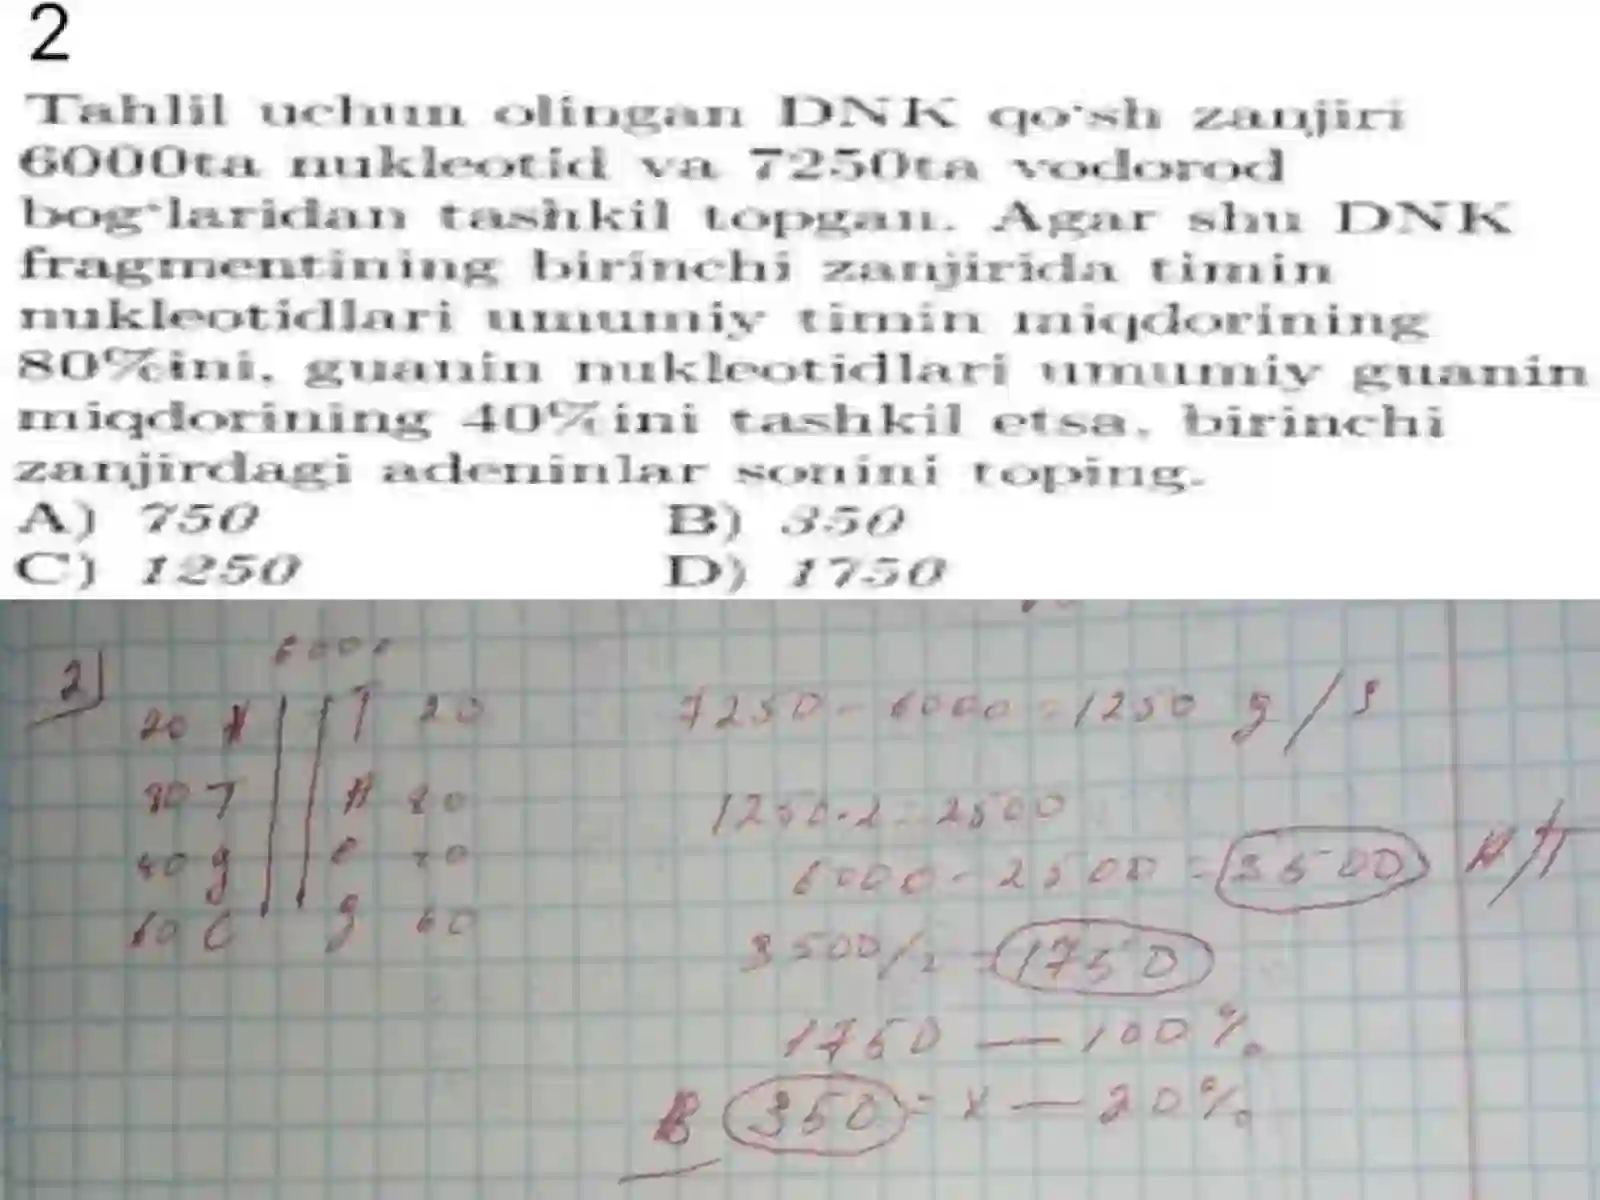 2
Tahlil uchun olingan DNK qo'sh zanjiri
6000ta nukleotid va 7250ta vodorod
bog'laridan tashkil topgan. Agar shu DNK
fragmentining birinchi zanjirida timin
nukleotidlari umumiy timin miqdorining
80%ini, guanin nukleotidlari umumiy guanin
miqdorining 40%ini tashkil etsa, birinchi
zanjirdagi adeninlar sonini toping.
A) 750 B) 350
C) 1250 D) 1750
2)
6000
20 A T 20
80 T A 80
40 g c 40
60 C g 60
7250 - 6000 = 1250 g/s
1250 · 2 = 2500
6000 - 2500 = 3500 A/T
3500/2 = 1750
1750 — 100%
B 350 = x — 20%